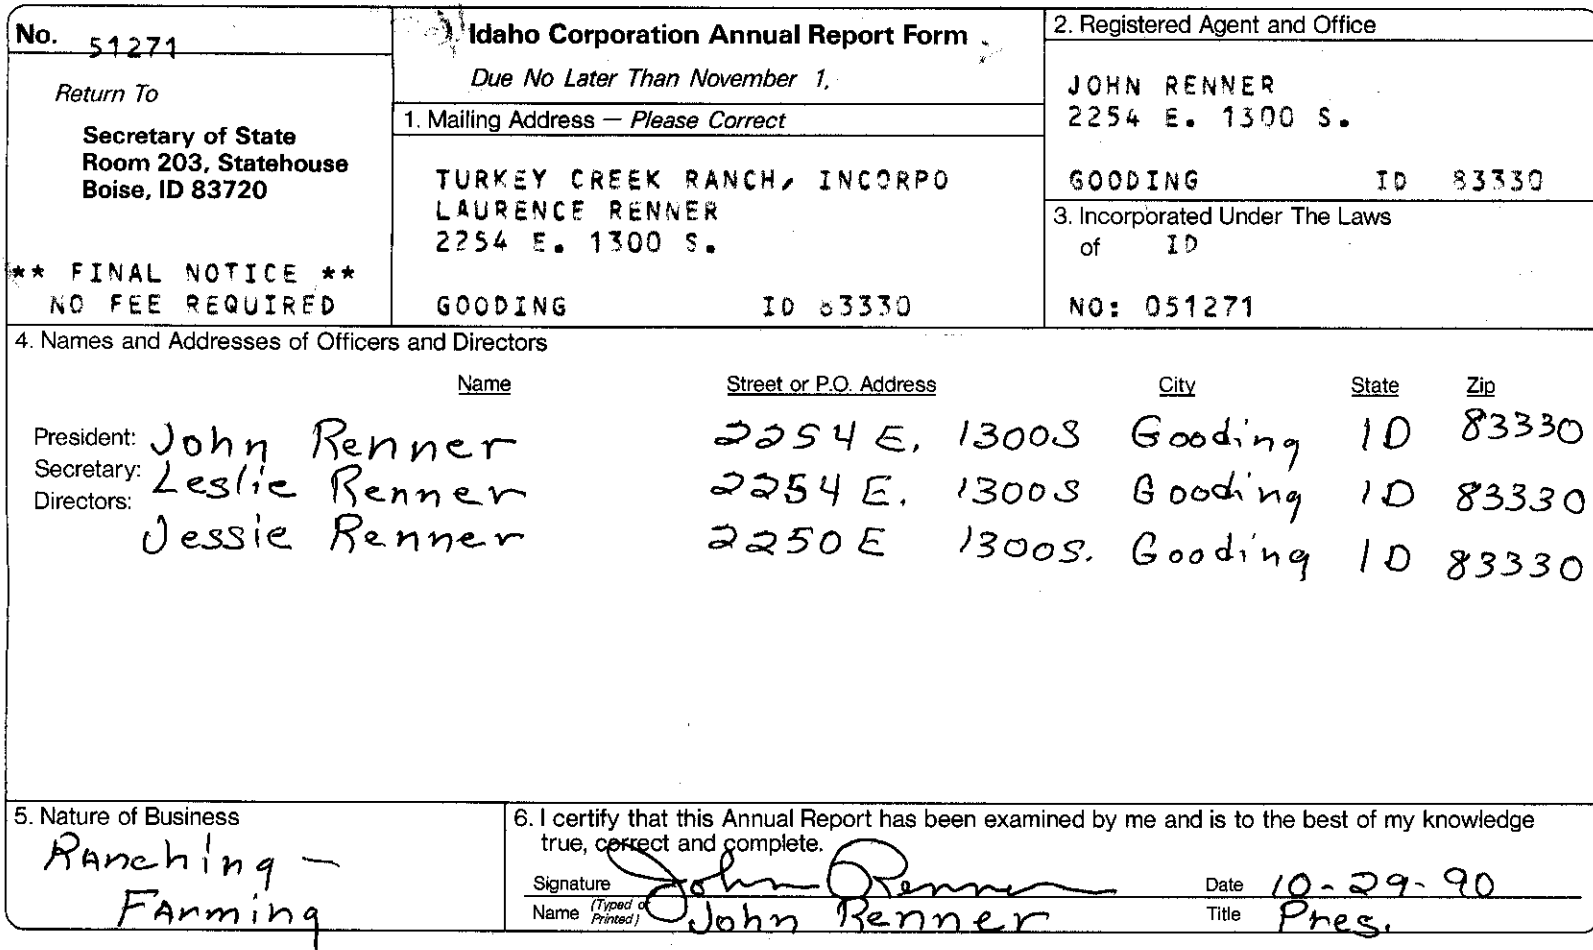 No. 51271
Return To
Secretary of State
Room 203, Statehouse
Boise, ID 83720
** FINAL NOTICE **
NO FEE REQUIRED
Idaho Corporation Annual Report Form
Due No Later Than November 1,
1. Mailing Address — Please Correct
TURKEY CREEK RANCH, INCORPO
LAURENCE RENNER
2254 E. 1300 S.
GOODING ID 83330
2. Registered Agent and Office
JOHN RENNER
2254 E. 1300 S.
GOODING ID 83330
3. Incorporated Under The Laws
of ID
NO: 051271
4. Names and Addresses of Officers and Directors
Name Street or P.O. Address City State Zip
President: John Renner 2254 E. 1300S Gooding ID 83330
Secretary: Leslie Renner 2254 E. 1300S Gooding ID 83330
Directors:
Jessie Renner 2250 E 1300S. Gooding ID 83330
5. Nature of Business
Ranching -
Farming
6. I certify that this Annual Report has been examined by me and is to the best of my knowledge
true, correct and complete.
Signature John Renner Date 10-29-90
Name (Typed or Printed) John Renner Title Pres.